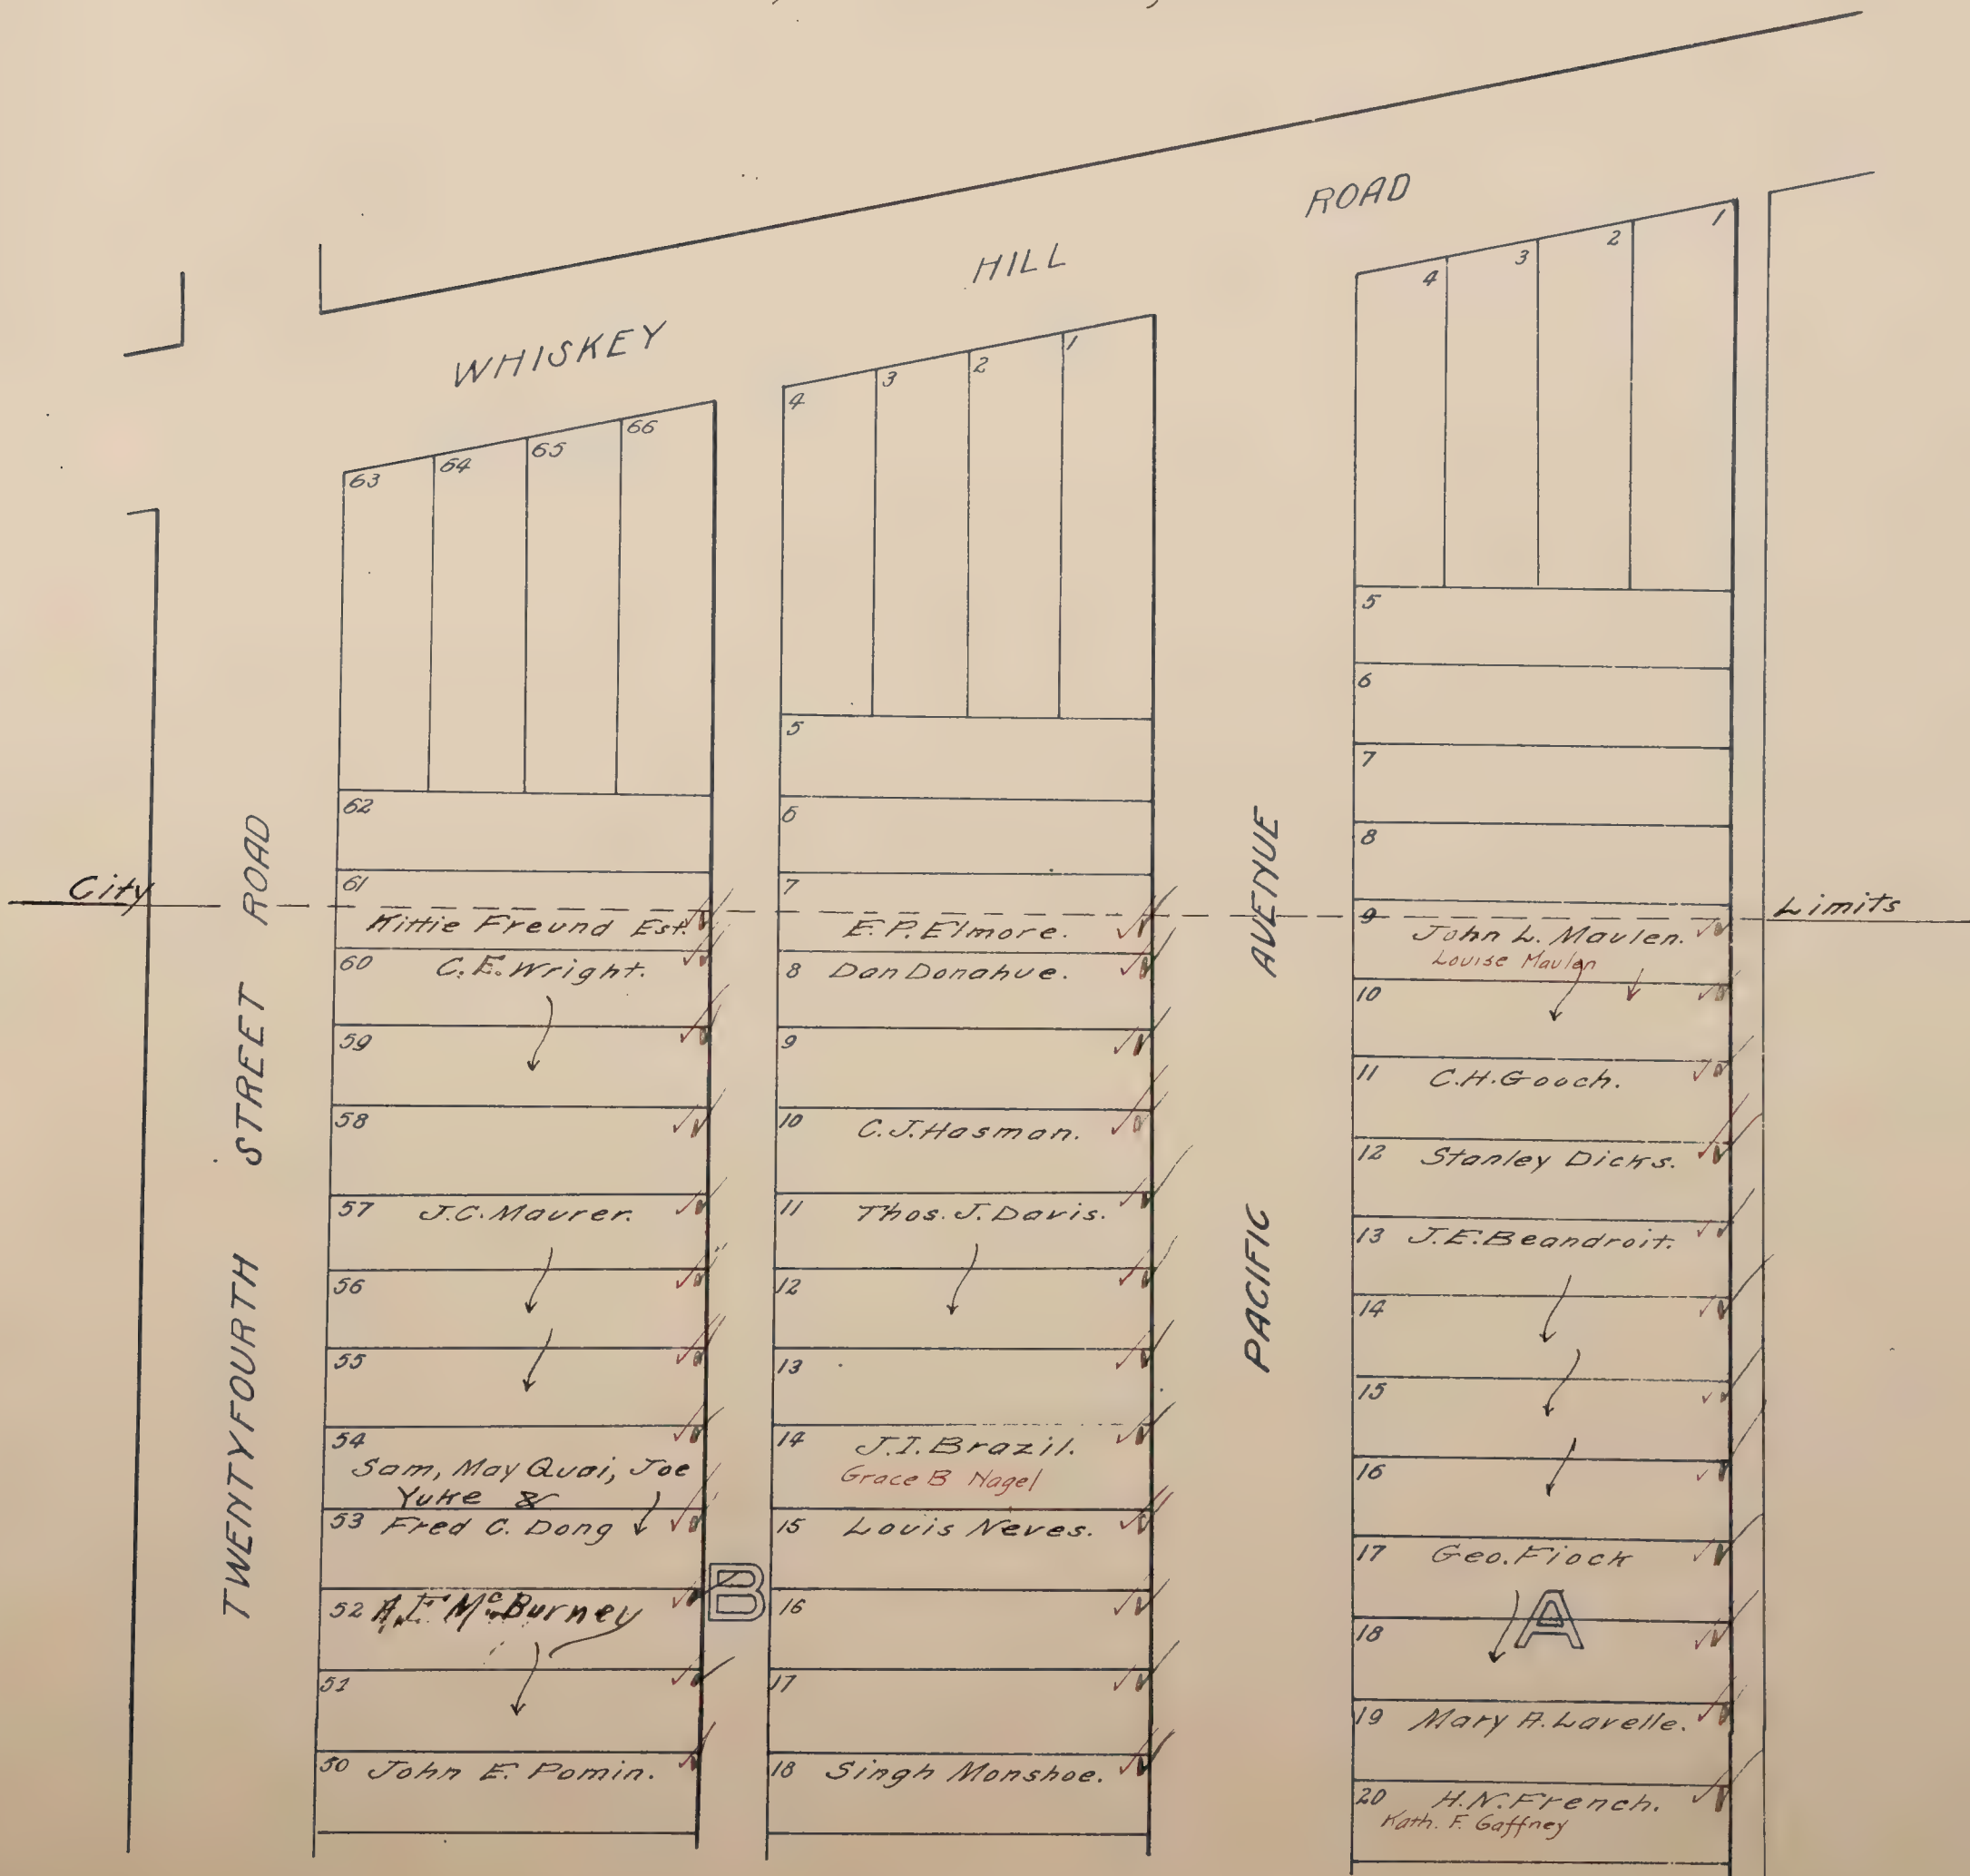 WHISKEY HILL ROAD
TWENTYFOURTH STREET ROAD
PACIFIC AVENUE
City Limits
63 64 65 66
62
61
Kittie Freund Est.
60 C. E. Wright.
59
58
57 J.C. Maurer.
56
55
54
Sam, May Quai, Joe
Yuke &
53 Fred C. Dong
52 McBurney
51
50 John E. Pomin.
B
4 3 2 1
5
6
7
E. P. Elmore.
8 Dan Donahue.
9
10 C.J. Hasman.
11 Thos. J. Davis.
12
13
14 J.I. Brazil.
Grace B Nagel
15 Louis Neves.
16
17
18 Singh Monshoe.
4 3 2 1
5
6
7
8
9
John L. Maulen.
Louise Maulen
10
11 C.H. Gooch.
12 Stanley Dicks.
13 J.E. Beandroit.
14
15
16
17 Geo. Fiock
18
A
19 Mary A. Lavelle.
20 H.N. French.
Kath. F. Gaffney